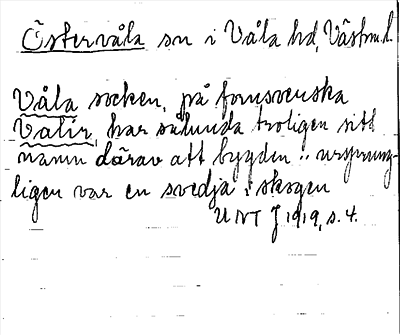 Östervåla sn i Våla hd, Västml.
Våla socken, på fornsvenska
Valir, har sålunda troligen sitt
namn därav att bygden ursprung-
ligen var en svedja i skogen
UNT J 1919, s. 4.